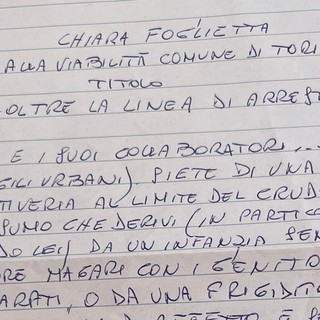 CHIARA FOGLIETTA
ALLA VIABILITÀ COMUNE DI TORI
TITOLO
OLTRE LA LINEA DI ARREST
E I SUOI COLLABORATORI...
GILI URBANI). SIETE DI UNA
TIVERIA AL LIMITE DEL CRUD
SUMO CHE DERIVI (IN PARTICO
DO LEI) DA UN INFANZIA SEN
RE MAGARI CON I GENITO
ARATI, O DA UNA FRIGIDIT